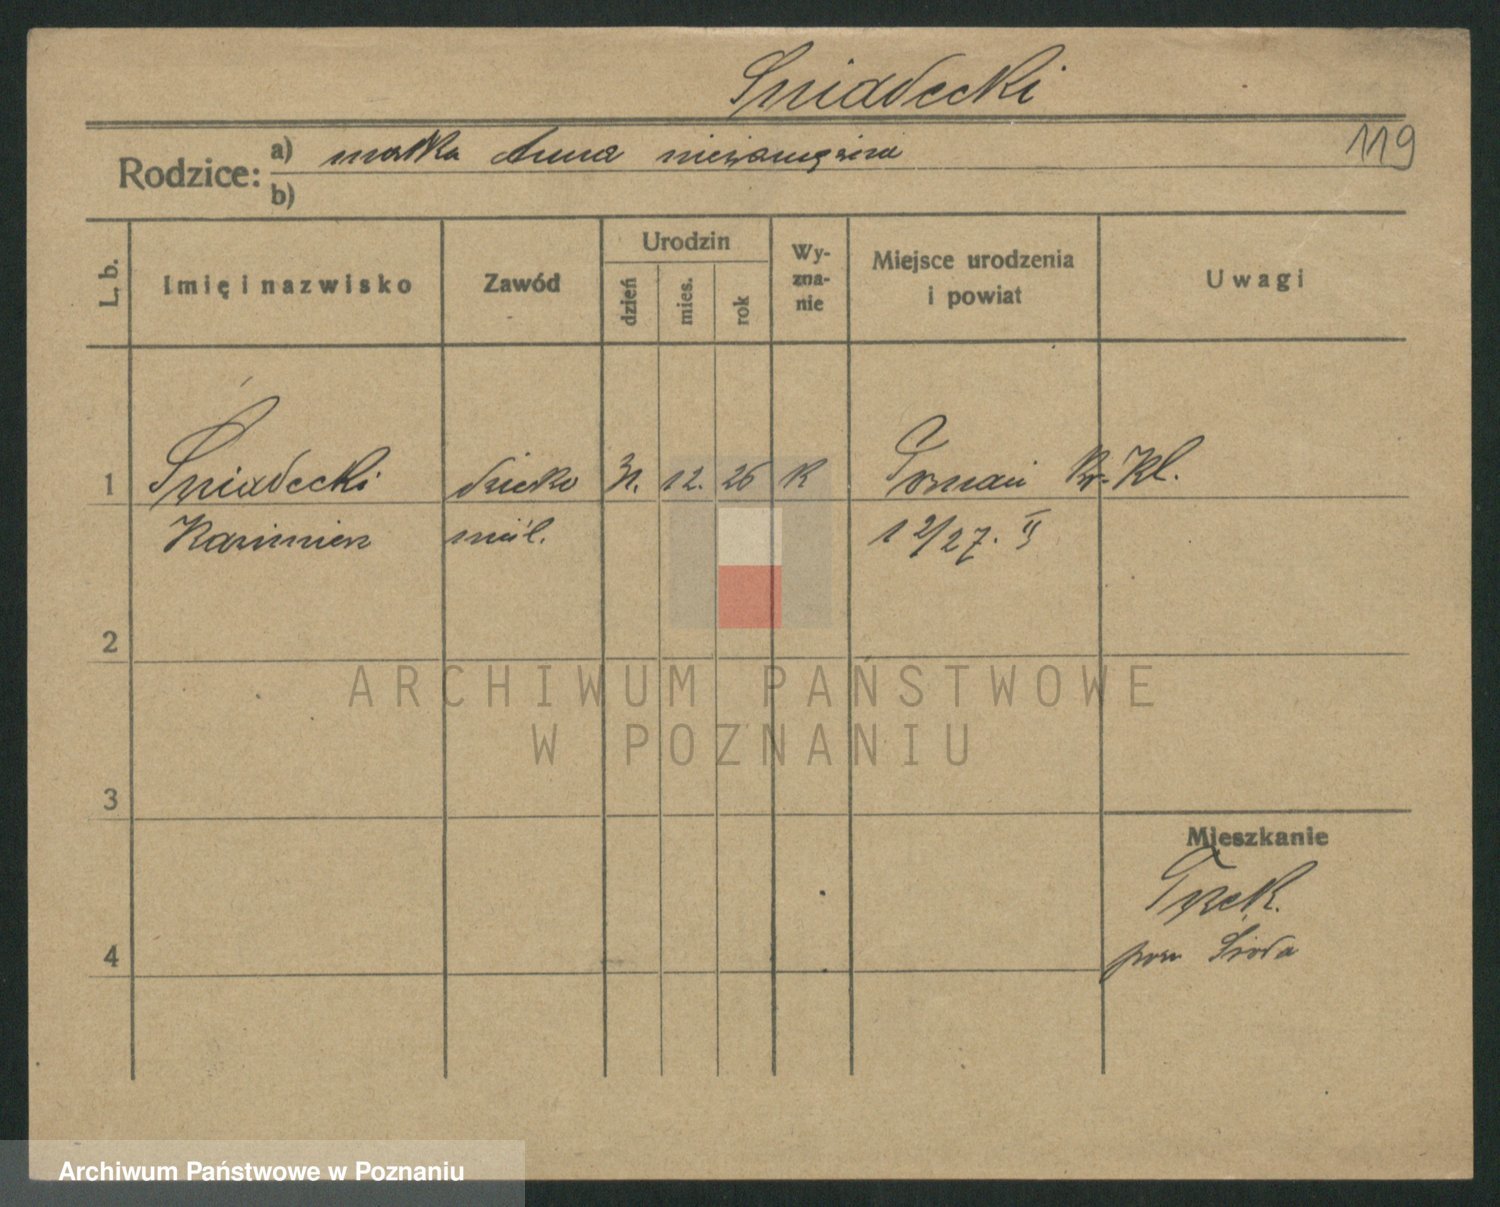 Śniadecki
119
Rodzice: a) matka Anna niezamężna
b)
L. b.
Imię i nazwisko
Zawód
Urodzin
dzień
mies.
rok
Wy-
zna-
nie
Miejsce urodzenia
i powiat
Uwagi
1
Śniadecki
dziecko
31.
12.
26
K
Poznań
Kl.
Kazimierz
12/27. II
2
3
4
Mieszkanie
pow Środa
ARCHIWUM PAŃSTWOWE
W POZNANIU
Archiwum Państwowe w Poznaniu